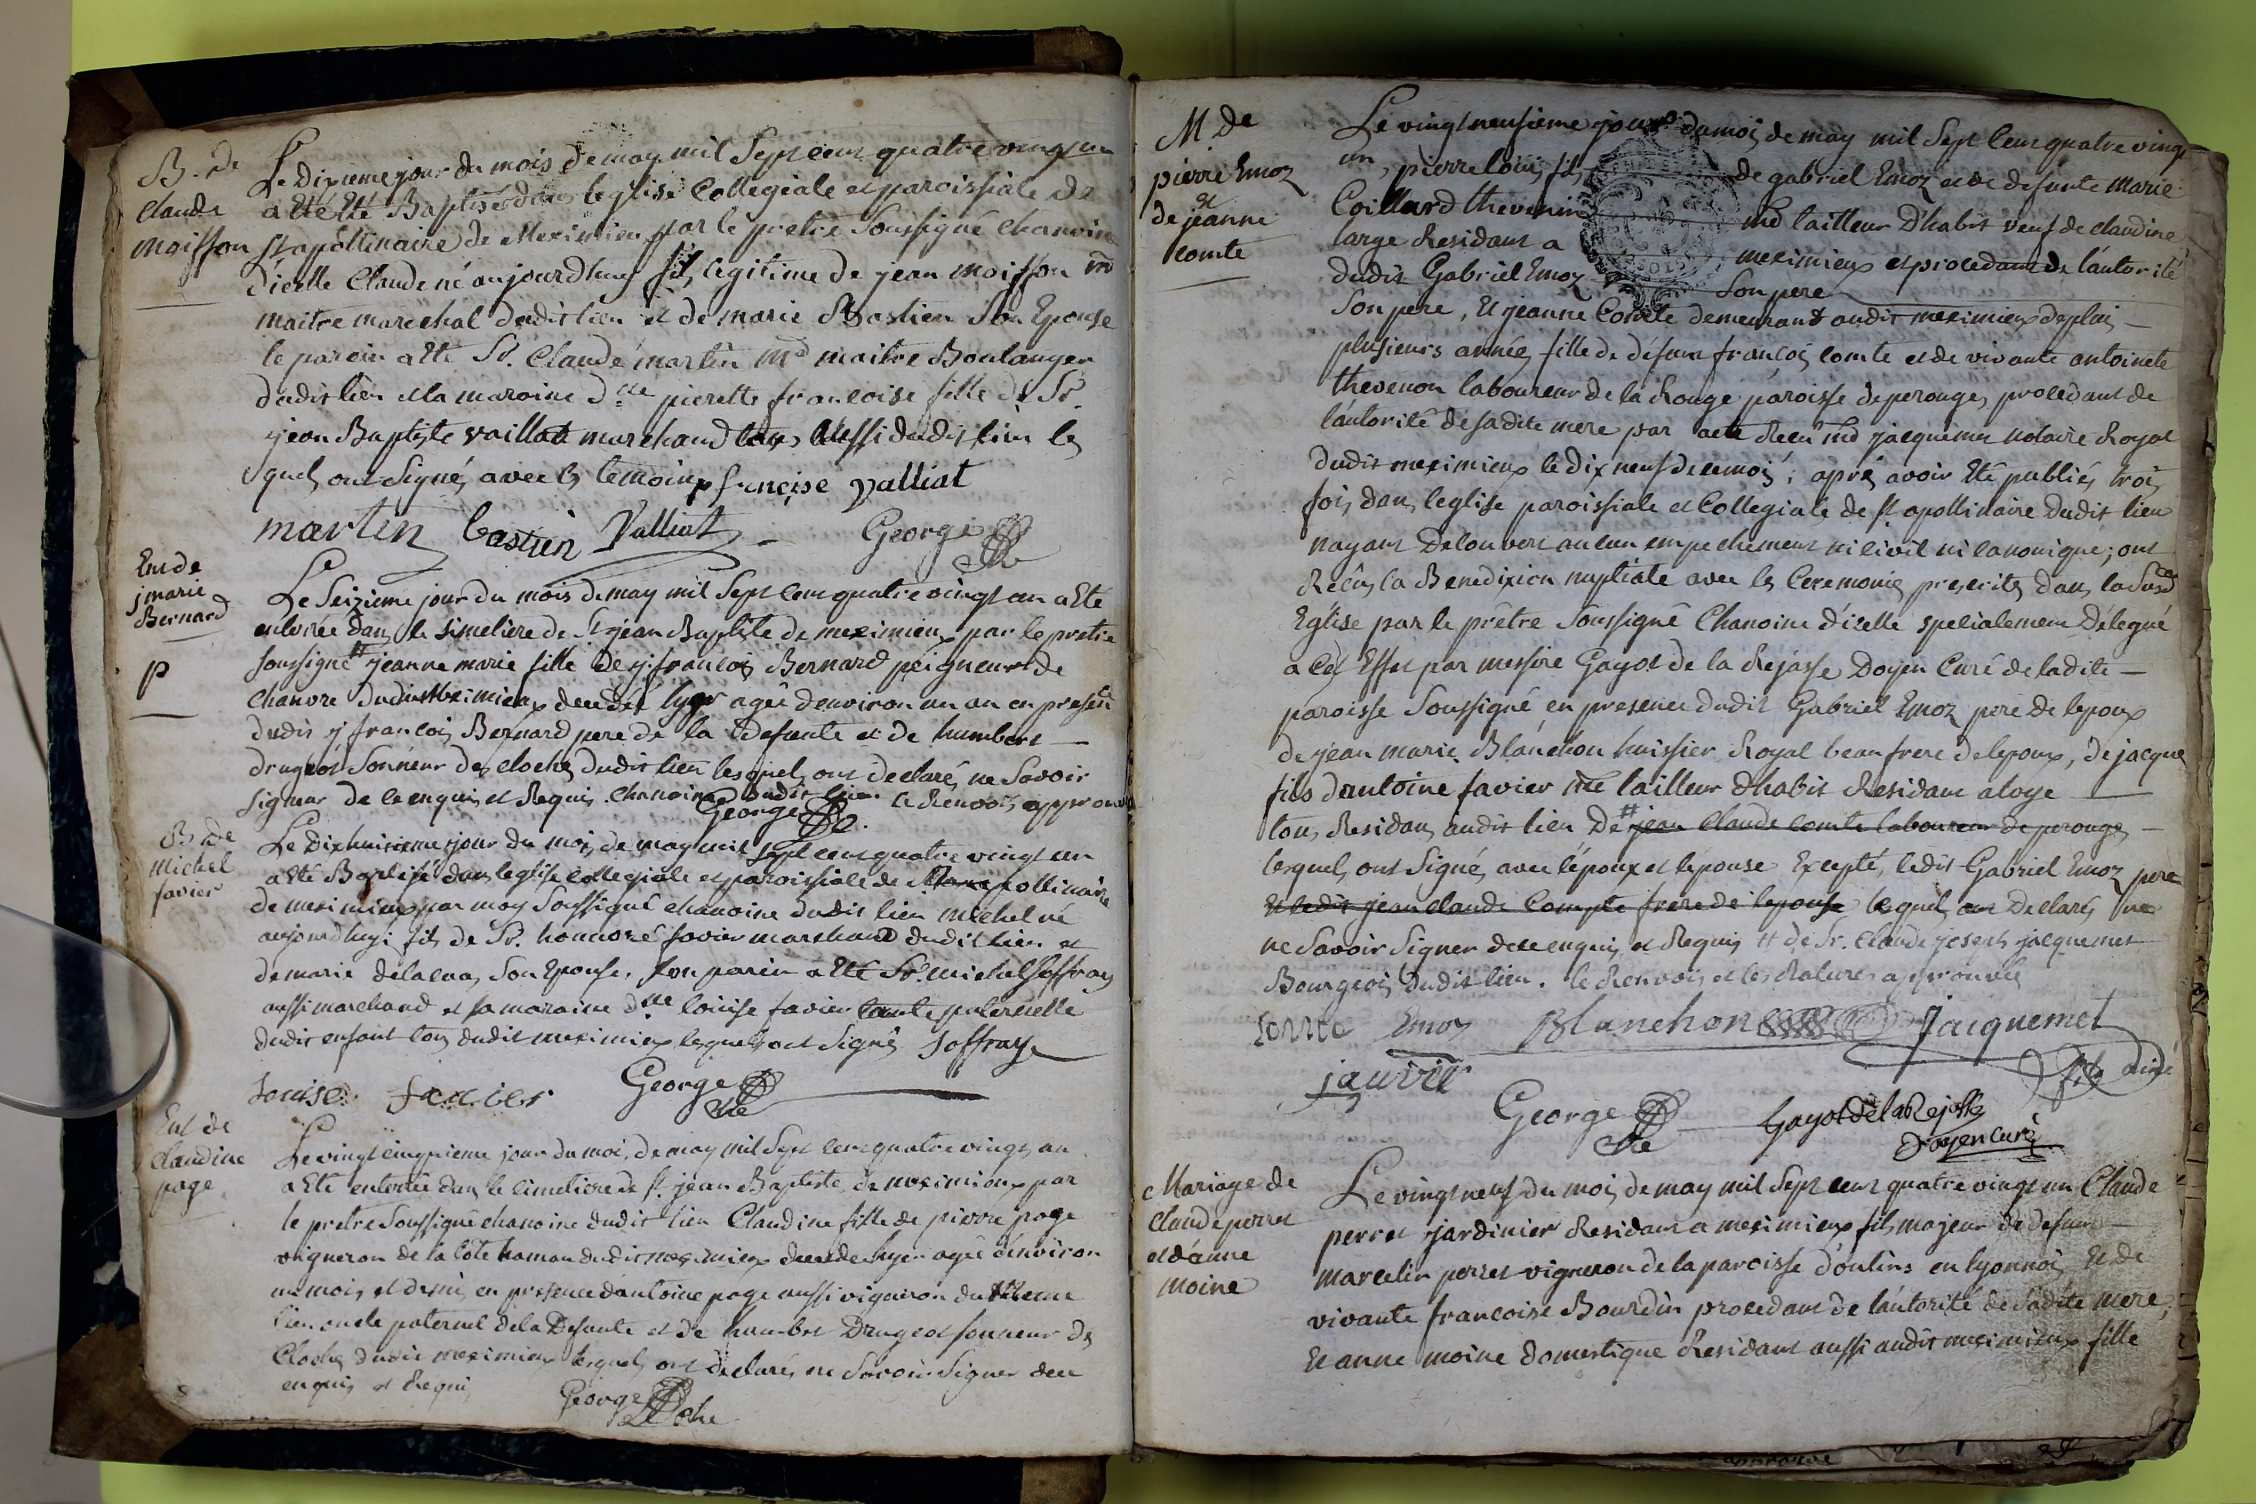 B. de
Claude
moisson
Le dixieme jour du mois de may mil Sept cens quatre vingt un
a Eté Eté Baptisé dans leglise Collegiale et paroissiale de
St apollinaire de Meximieux par le pretre Soussigné chanoine
d'icelle Claude né aujourdhuy fils legitime de jean moisson md
maitre marechal dudit lieu et de marie Bastien Son Epouse
le parein a Eté Sr. Claude martin md maitre Boulanger
dudit lieu et la maraine dlle pierette francoise fille de Sr.
jean Baptiste vaillat marchand aussi dudit lieu les
quels ont Signé, avec les temoins françise valliat
martin bastien Valliat George
che
Ent de
jmarie
Bernard
p
Le Seizieme jour du mois de may mil Sept cens quatre vingt un a Eté
enterrée dans le simetiere de St jean Baptiste de meximieux par le pretre
soussigné # jeanne marie fille de j. francois Bernard peigneur de
chanvre dudit Meximieux decedée hyer agée d'environ un an en presence
dudit j francois Bernard pere de la defunte et de humbert —
drugeot Sonneur des cloches dudit lieu lesquels ont declaré, ne Savoir
signer de ce enquis et Requis. # chanoine dudit lieu le Renvois approuvé
George che.
B. de
Michel
favier
Le dix huitieme jour du mois de may mil sept cens quatre vingt un
a Eté Baptisé dans leglise collegiale et paroissiale de St apollinaire
de meximieux par moy Soussigné chanoine dudit lieu michel né
aujourdhuy fils de Sr. honnoré favier marchand dudit lieu et
de marie delacua, Son Epouse, Son parein a Eté Sr. michel Soffray
aussi marchand et sa maraine dlle loüise favier tante paternelle
dudit enfant tous dudit meximieux lesquels ont Signé Soffray
Louise favier George
che
Ent de
Claudine
page
Le vingt cinquieme jour du moi, de may mil Sept cens quatre vingt, un
a Eté enterrée dans le cimetiere de St jean Baptiste de meximieux par
le pretre Soussigné chanoine dudit lieu Claudine fille de pierre page
vigneron de la Côte hamau dudit meximieux decedée hyer agée d'environ
un mois et demi, en presence d'antoine page aussi vigneron du meme
lieu oncle paternel de la Defunte et de humbert Drugeot sonneur des
Cloches dudit meximieux lesquels ont declaré, ne Savoir Signer de ce
enquis et Requis
George che
M. de
pierre Emoz
et
de jeanne
comte
Le vingt neufieme jour du mois de may mil Sept Cens quatre vingt
un, pierre loüis fils de gabriel Emoz et de defunte Marie
Coillard thevenin md tailleur D'habit veuf de claudine
large Residant a meximieux et procedant de l'autorité
dudit Gabriel Emoz Son pere
Son pere, Et jeanne Comte demeurant audit meximieux depluis —
plusieurs année, fille de défunt françois comte et de vivante antoinete
thevenon laboureur de la Rouge paroisse de perouges, procedant de
l'autorité de sadite mere par acte Recu md jacquemet notaire Royal
dudit meximieux le dix neuf de ce mois; aprés avoir Eté publiés trois
fois dans leglise paroissiale et Collegiale de St apollinaire dudit lieu
nayant Decouvert aucun empechement ni civil ni canonique; ont
Reçûs la Benediction nuptiale avec les Ceremonies prescrites dans la Susd
Eglise par le prêtre Soussigné Chanoine d'icelle specialement Délegué
a Cet Effet par messire Gayot de la Rejasse Doyen Curé de ladite —
paroisse Soussigné, en presence dudit Gabriel Emoz pere de lepoux
de jean marie Blanchon huissier Royal beau frere de lepoux, de jacque
fils d'antoine favier tailleur dhabit Residant a loye —
tous Residans audit lieu De # jean Claude comte laboureur de perouges —
lesquels ont Signé, avec l'époux et lépouse Excepté, ledit Gabriel Emoz pere
Et ledit jean claude Compte frere de lepouse lequel a Declaré ne
ne Savoir Signer de ce enquis et Requis # de Sr. Claude joseph jacquemet
Bourgeois dudit lieu. le Renvois et les Ratures approuvés
comte Emoz Blanchon Jacquemet
fils ainé
George Gayot de la Rejasse
che Doyen curé
Mariage de
Claude perret
et d'anne
moine
Le vingt neuf du mois de may mil Sept cens quatre vingt un Claude
perret jardinier Residant a meximieux fils majeur de defunt —
marcelin perret vigneron de la paroisse d'oulins en lyonnois, Et de
vivante francoise Bourdin procedant de l'autorité de Sadite mere;
Et anne moine domestique Residant aussi audit meximieux fille